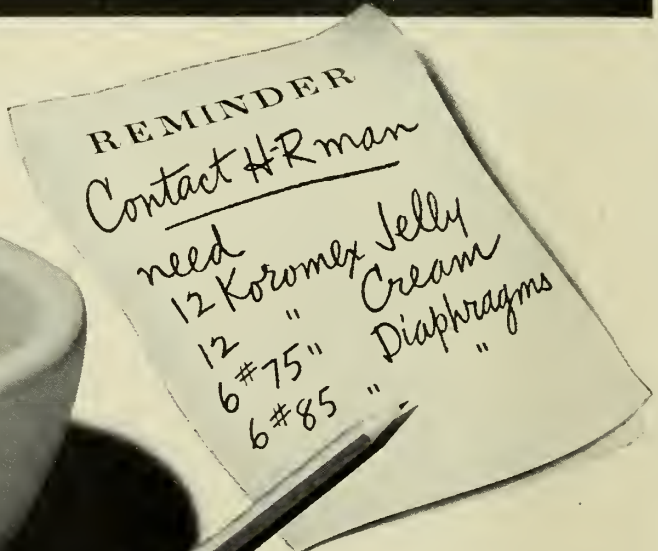 REMINDER
Contact H-R man
need
12 Koromex Jelly
12 " Cream
6 #75 " Diaphragms
6 #85 " "